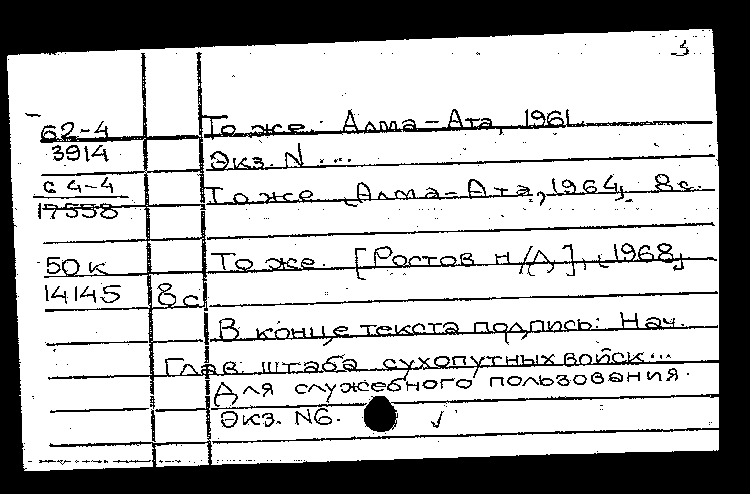 3
62-4 То же. Алма-Ата, 1961.
3914 Экз. N ....
с 4-4 То же [Алма-Ата, 1964]. 8 с.
17558
50к То же. [Ростов н/Д], [1968]
14145 8с
В конце текста подпись: Нач.
Глав. штаба сухопутных войск...
Для служебного пользования.
Экз. N6. ✓